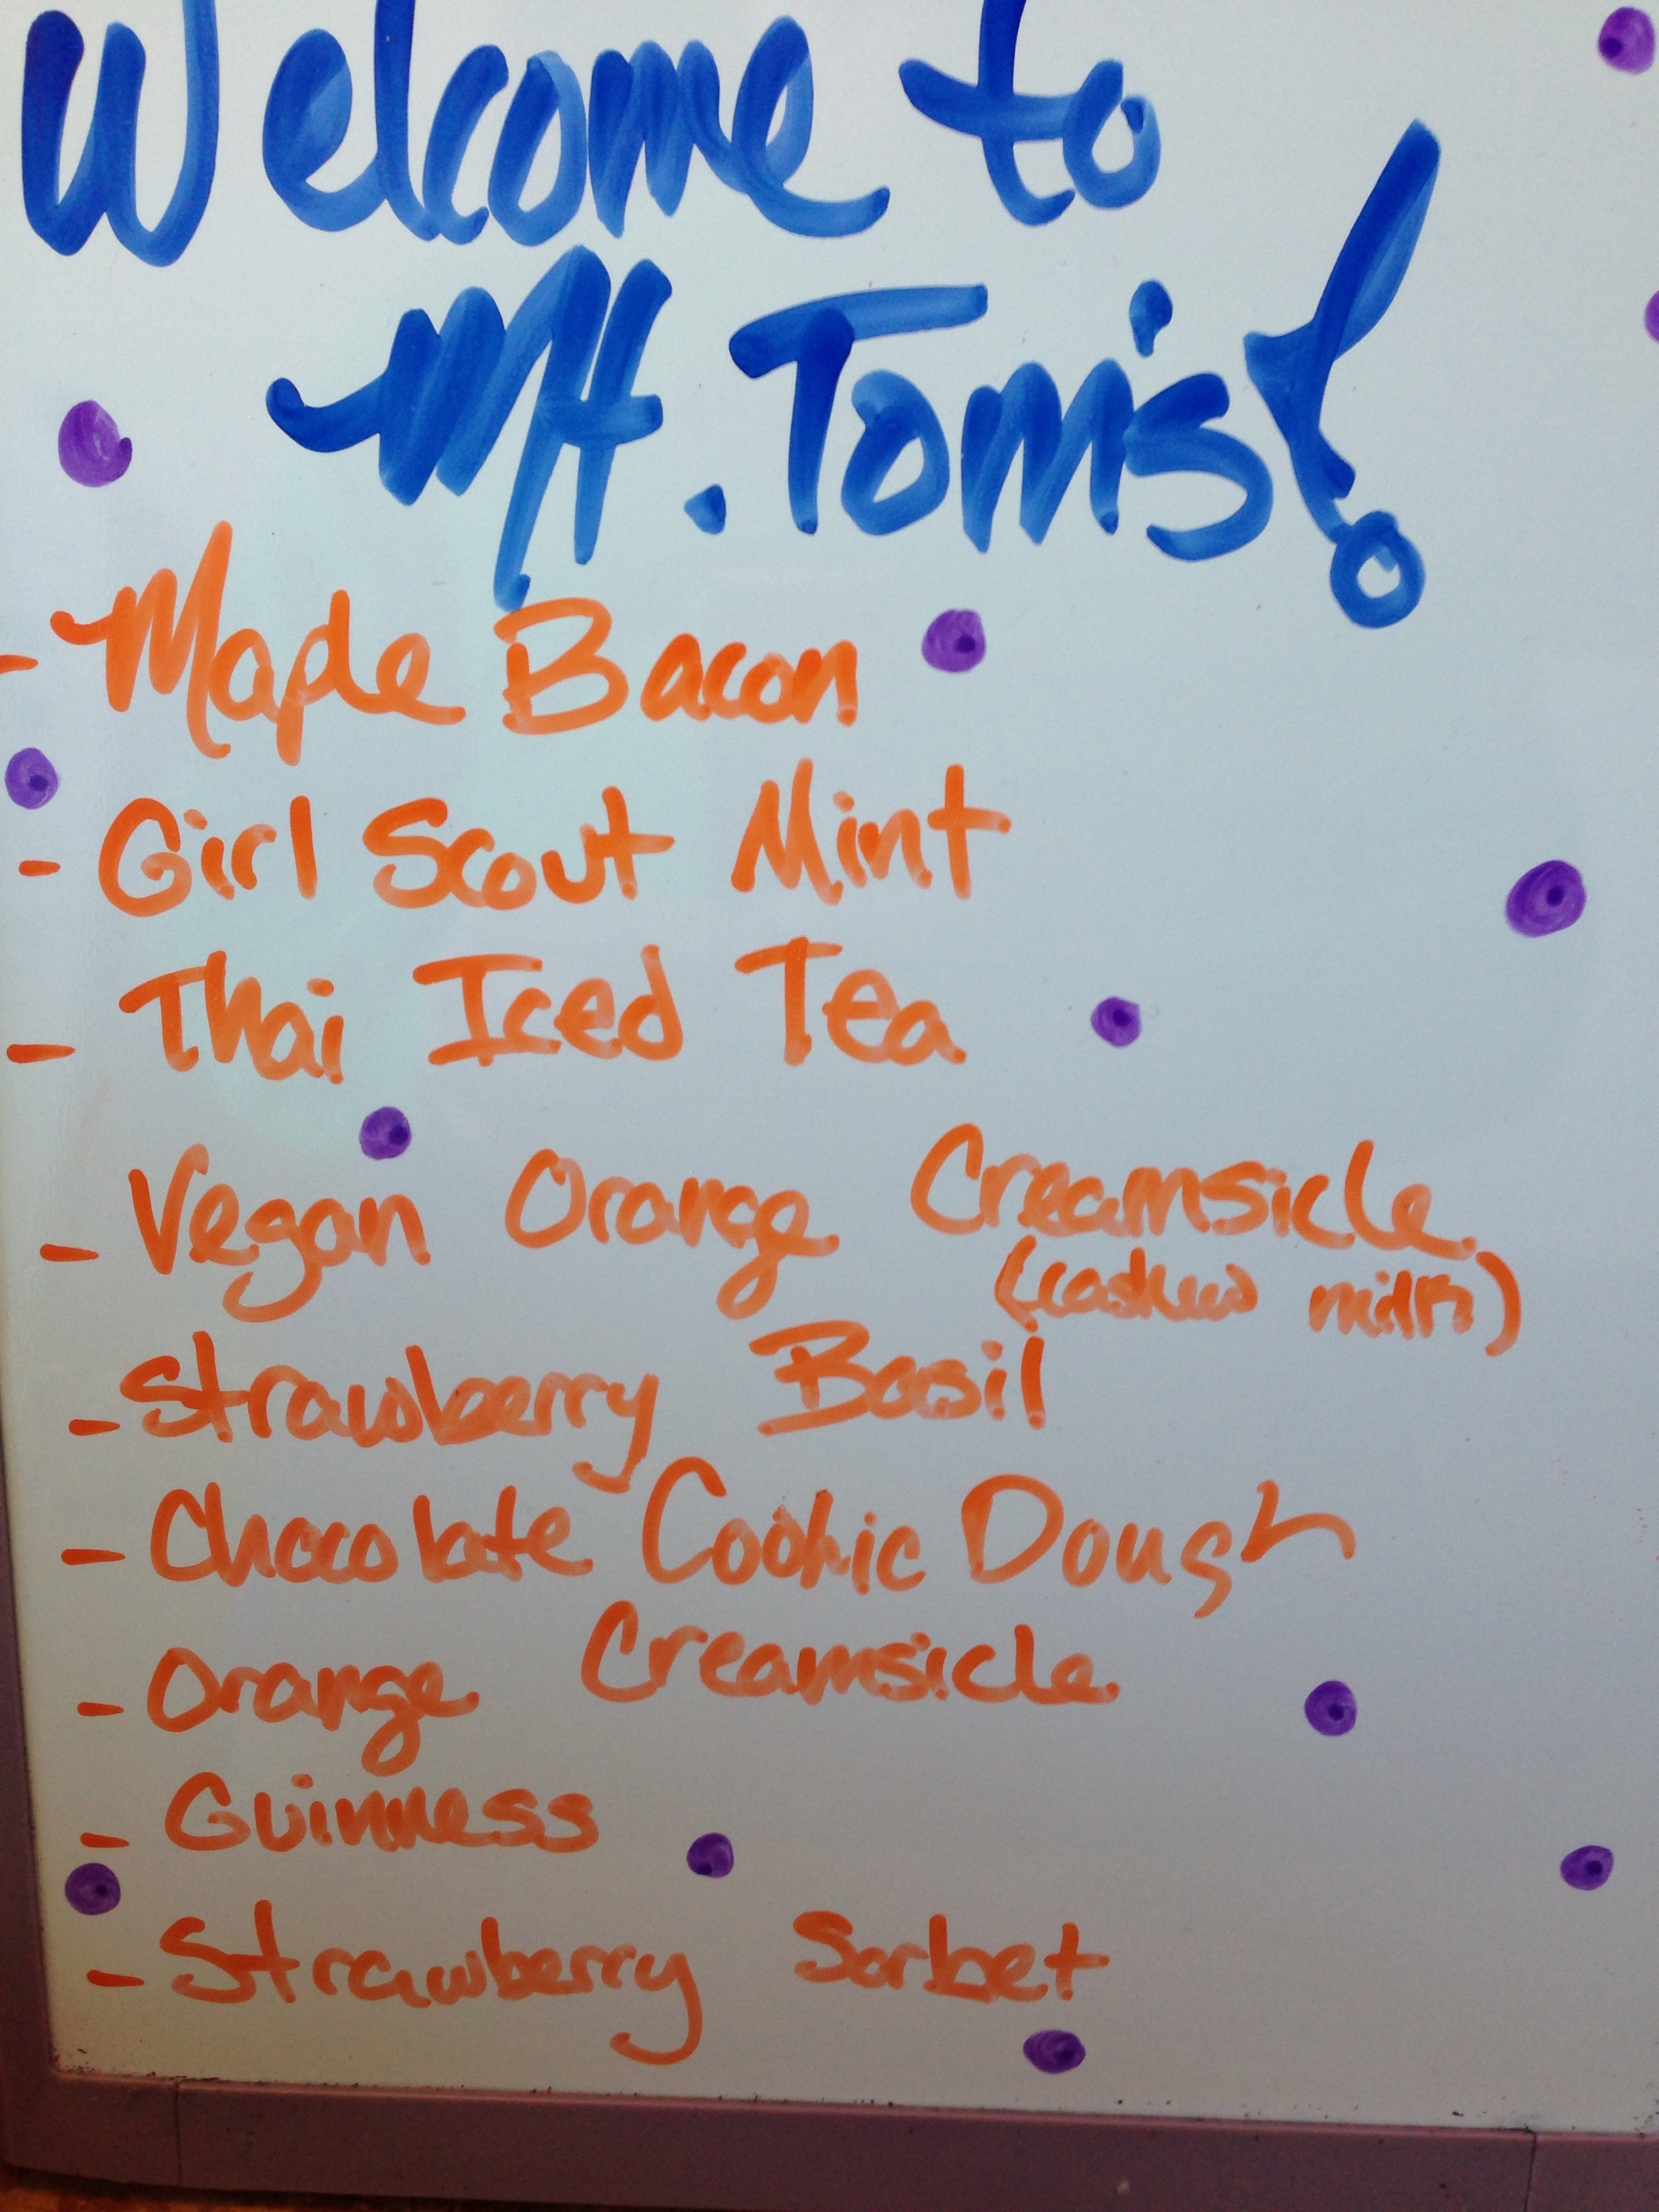 Welcome to
Mt. Tom's!
- Maple Bacon
- Girl Scout Mint
- Thai Iced Tea
- Vegan Orange Creamsicle
(cashew milk)
- Strawberry Basil
- Chocolate Cookie Dough
- Orange Creamsicle
- Guinness
- Strawberry Sorbet